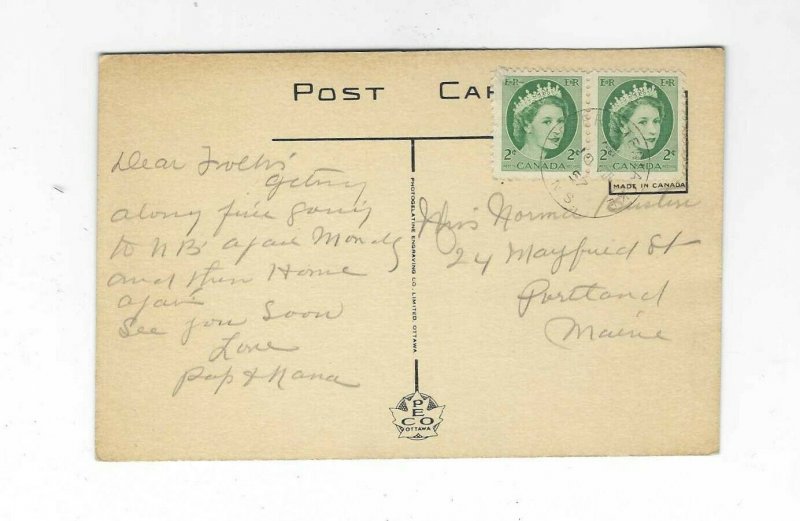 POST CAR
E R E R
2¢ 2¢
CANADA
E R E R
2¢ 2¢
CANADA
MADE IN CANADA
Dear Folks
Getting
along fine going
to NB again Monday
and then Home
again
See you Soon
Love
Pap & Nana
PHOTOGELATINE ENGRAVING CO. LIMITED, OTTAWA
Miss Norma
24 Mayfield St
Portland
Maine
PECO
OTTAWA